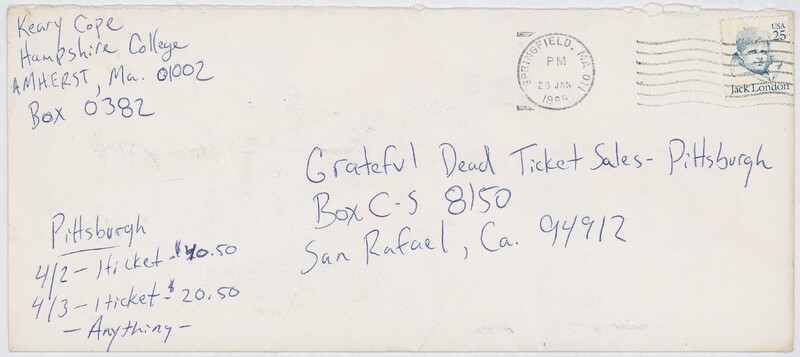 Keary Cope
Hampshire College
AMHERST, Ma. 01002
Box 0382
SPRINGFIELD, MA 011
PM
20 JAN
USA
25
Jack London
Grateful Dead Ticket Sales- Pittsburgh
Box C-S 8150
San Rafael, Ca. 94912
Pittsburgh
4/2 - 1 ticket - $40.50
4/3 - 1 ticket - $20.50
- Anything -